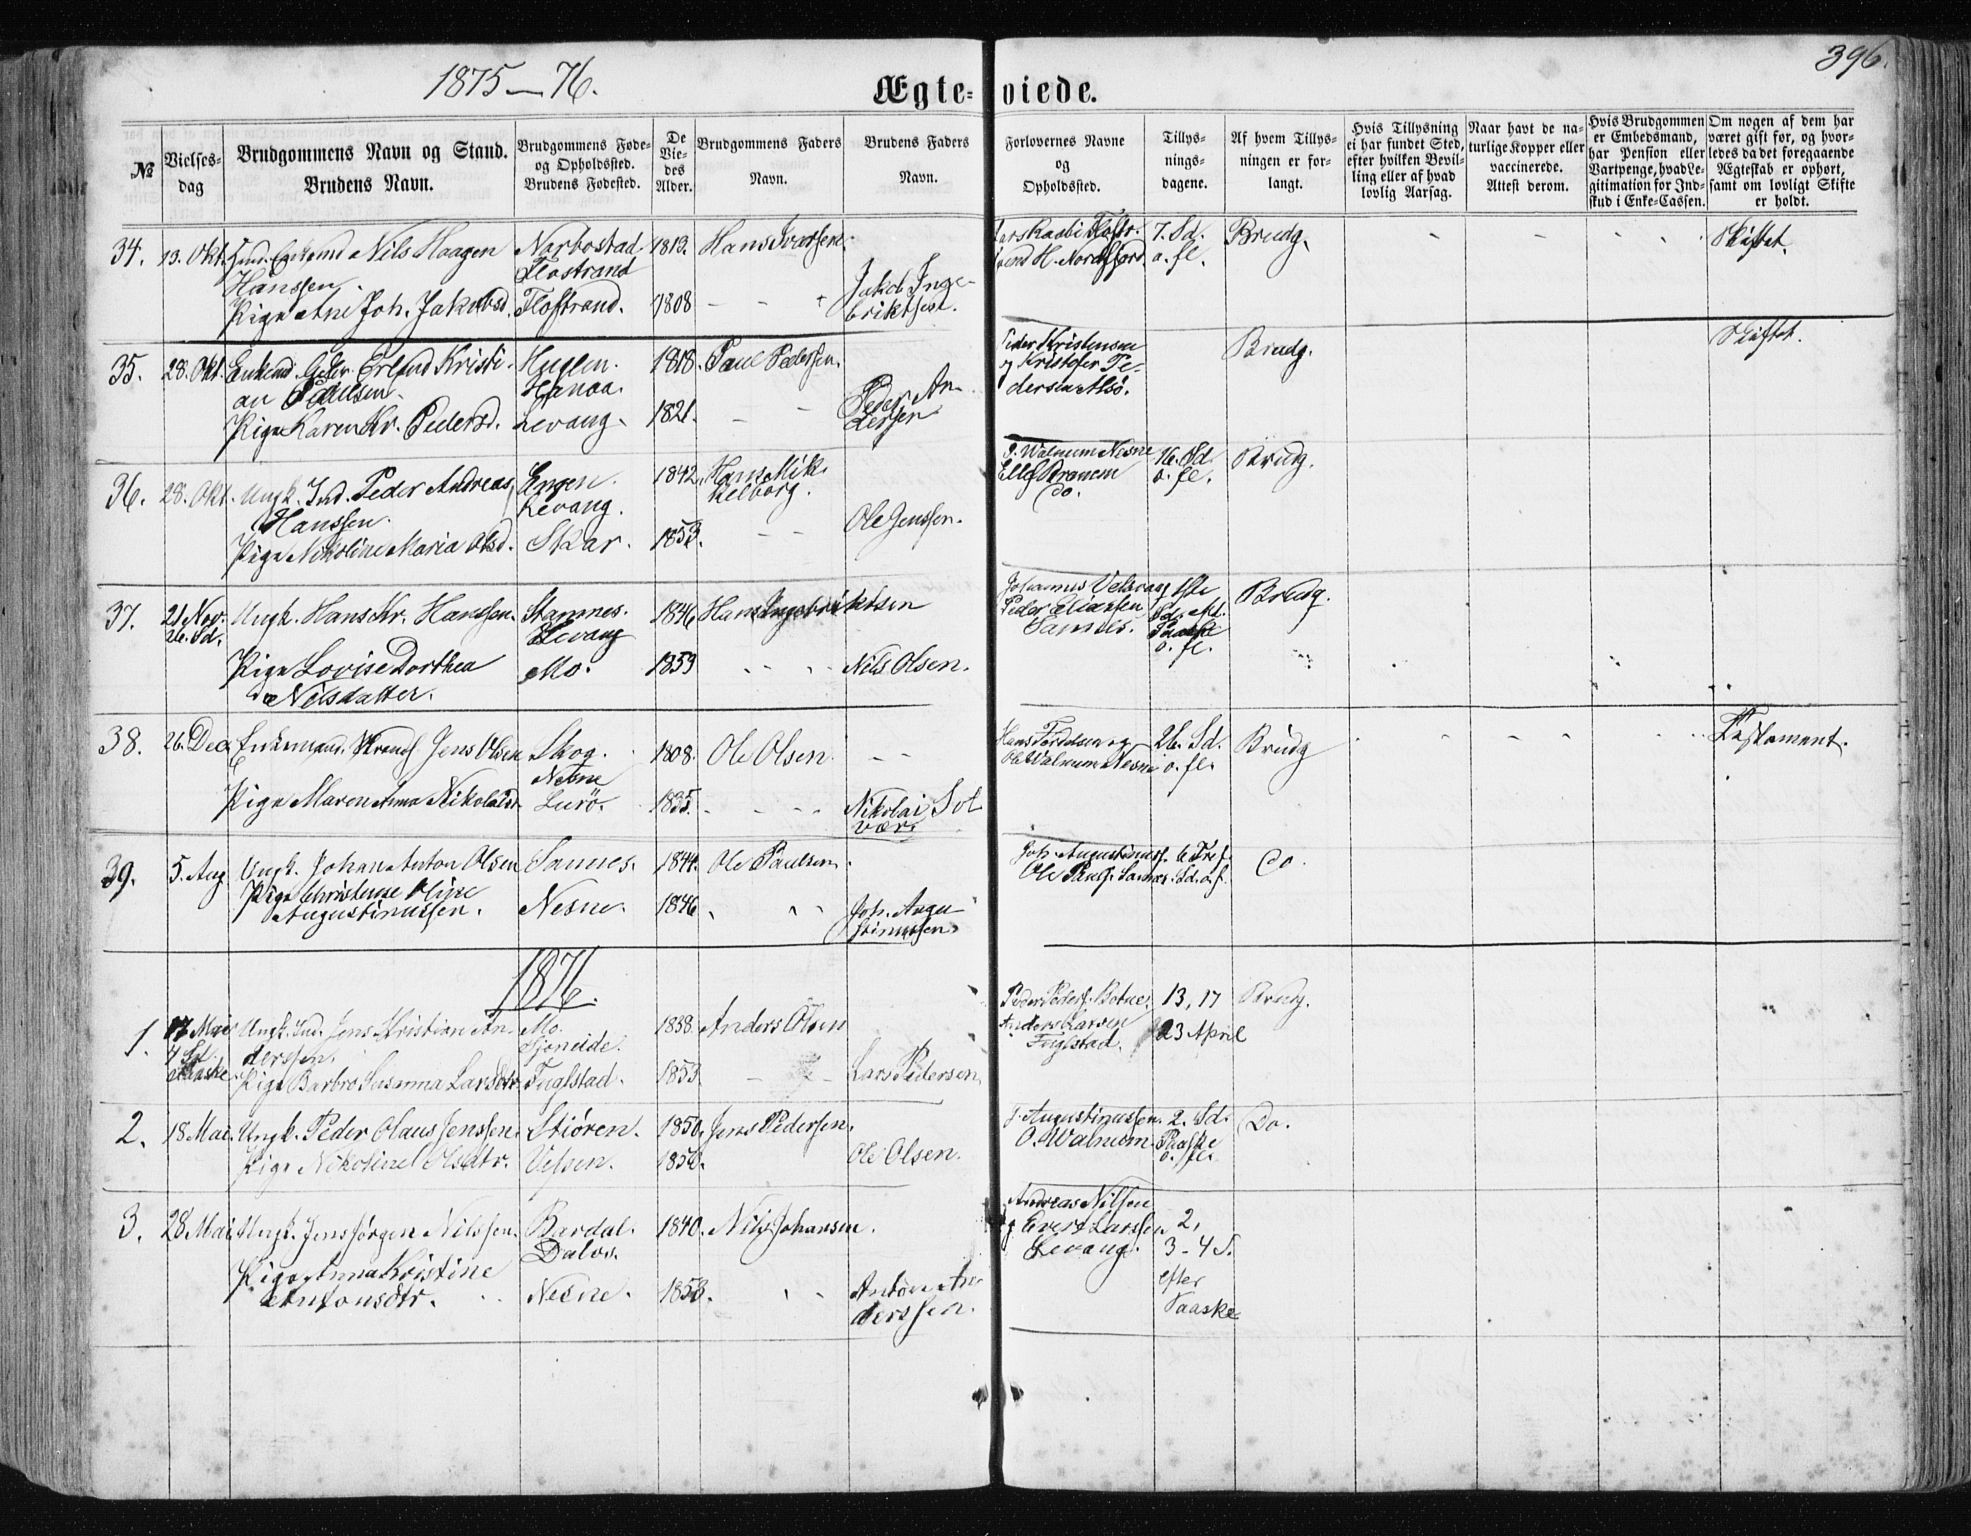 1875—76.
Ægte-viede.
396.
№
Vielses-dag
Brudgommens Navn og Stand.
Brudens Navn.
Brudgommens Føde- og Opholdssted.
Brudens Fødested.
De Viedes Alder.
Brudgommens Faders Navn.
Brudens Faders Navn.
Forlovernes Navne og Opholdsted.
Tillysningsdagene.
Af hvem Tillysningen er forlangt.
Hvis Tillysning ei har fundet Sted, efter hvilken Bevilling eller af hvad lovlig Aarsag.
Naar havt de naturlige Kopper eller vaccinerede. Attest derom.
Hvis Brudgommen er Embedsmand, har Pension eller Vartpenge, hvad Legitimation for Indskud i Enke-Cassen.
Om nogen af dem har været gift før, og hvorledes da det foregaaende Ægteskab er ophørt, samt om lovligt Skifte er holdt.
34. 13. Okt. Ind. Enkemd Nils Haagen Narbostad 1813. Hans Ivarsen. 7. Sd. Brudg. Skiftet.
Hanssen. Flostrand H. Nordfjord. o. fl.
Pige Ane Joh. Jakobsd. Flostrand. 1808 - - Jakob Ingebriktsen.
35. 28. Okt. Enkemd. Erlend Kristi- Huglen. 1818. Paul Pedersen. Peder Kristensen Brudg. Skiftet.
an Paulsen. Hanaa. og Kristofer Pe-
Pige Karen Kr. Pedersd. Levang. 1821. - - Peder An- dersen Alsö.
dersen
36. 28. Okt. Ungk. Ind. Peder Andreas Engen. 1842. Hans Mik. Walnum Nesne 16. Sd. Brudg.
Hanssen. Levang. Kelborg. o. fl.
Pige Nikoline Maria Olsd. Skar. 1853. - - Ole Jenssen. Do.
37. 21 Nov. Ungk. Hans Kr. Hanssen. Stamnes. 1846 Hans Ingebriktsen Johannes Brudg.
26. Sd. Levang Peder Eliassen
Pige Lovise Dorthea Mo. 1859 Nils Olsen. Samnes. o. fl.
Nilsdatter.
38. 26. Dec. Enkemand. Jens Olsen Skog. 1808. Ole Olsen. - - Hans og 26. Sd. Brudg Testament.
Nesne Walnum Nesne o. fl.
Pige Maren Anna Nikolaisd. Lurö. 1835. - - Nikolai Sol
vær.
39. 5. Aug Ungk. Johan Anton Olsen Samnes. 1844. Ole Paulsen. Joh. Augustinuss. 6 Tref. Do.
Pige Christense Oline Nesne. 1846 Joh. Augu Ole Pauls. Samnes. Sd. o. f.
Augustinussen. stinussen.
1876.
1. 17 Mai Ungk. Ind. Jens Kristian An- Mo. 1838. Anders Olsen Peder Peders. Botnes. 13, 17 Brudg.
4 Sd. derssen. Sjoneide. Anders Larsen 23 April
Paaske Pige Barbro Susanna Larsdtr Fuglstad. 1853. - - Lars Pedersen Fuglstad.
2. 18 Mai. Ungk. Peder Olaus Jenssen. Stiören. 1850. Jens Pedersen. J. Augustinussen. 2. Sd. Do.
Pige Nikoline Olsdtr. Velsen. 1850. Ole Olsen. O. Walnum. Paaske
o. fl.
3. 28 Mai. Ungk. Jens Jörgen Nilssen. Bardal. 1840. Nils Johansen. Andreas Nilsen
Dalos. og Evert Larssen 2,
Pige Anna Kristine Levang. 3-4 S.
Antonsdtr. Nesne. 1853. Anton An efter
derssen. Paaske